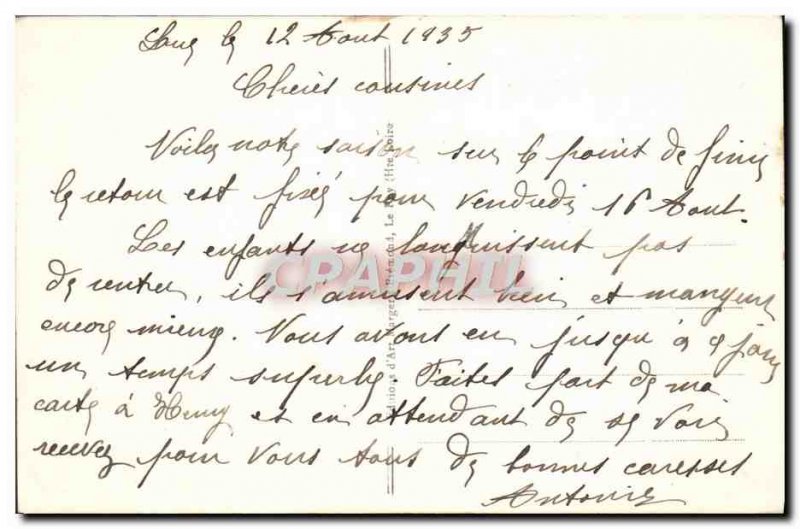 le 12 Aout 1935
Chères cousines
Voila notre saison sur le point de finir
le retour est fixé pour vendredi 16 Aout.
Les enfants ne languissent pas
de rentrer, ils s'amusent bien et mangent
encore mieux. Nous avons eu jusqu'à ce jour
un temps superbe Faites part de ma
carte à Henry et en attendant de se voir
recevez pour vous tous de bonnes caresses
Antonie
Editions d'Art Margerit-Brémond, Le Puy (Hte-Loire
CRAPHIL